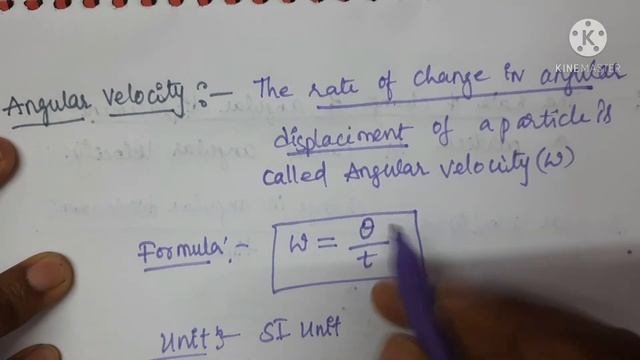 KINEMASTER
Angular Velocity :- The rate of change in angular
displacment of a particle is
called Angular velocity (ω)
Formula :- ω = θ/t
Unit :- SI Unit